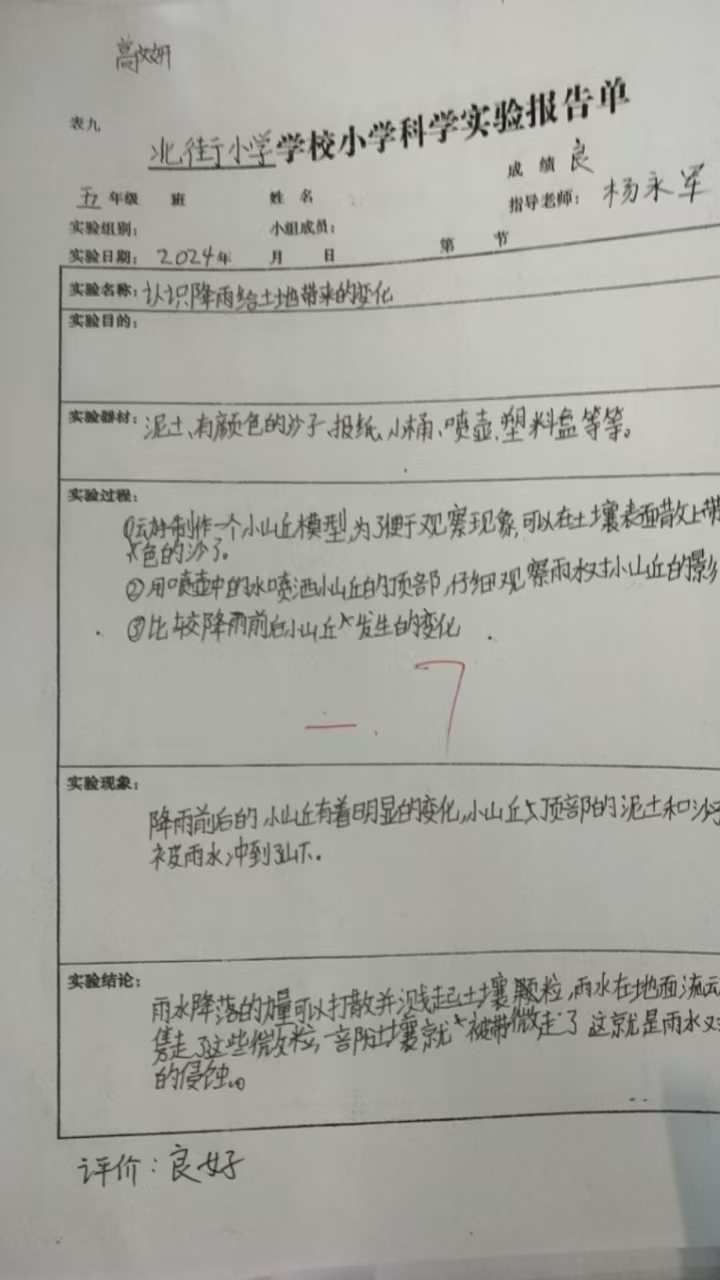 高文妍
表九
北街小学学校小学科学实验报告单
成 绩 良
五年级 班 姓 名 指导老师: 杨永军
实验组别: 小组成员:
实验日期: 2024年 月 日 第 节
实验名称: 认识降雨给土地带来的变化
实验目的:
实验器材: 泥土、有颜色的沙子、报纸、小桶、喷壶、塑料盒等等。
实验过程:
制作一个小山丘模型,为了便于观察现象,可以在土壤表面散上带
色的沙子。
②用喷壶中的水喷洒小山丘的顶部,仔细观察雨水对小山丘的影
③比较降雨前后小山丘发生的变化
一.7
实验现象:
降雨前后的小山丘有着明显的变化,小山丘顶部的泥土和沙子
被雨水冲到了山下.
实验结论:
雨水降落的力量可以打散并溅起土壤颗粒,雨水在地面流
走了这些微粒,一部份土壤就被带走了 这就是雨水对
的侵蚀。
评价:良好